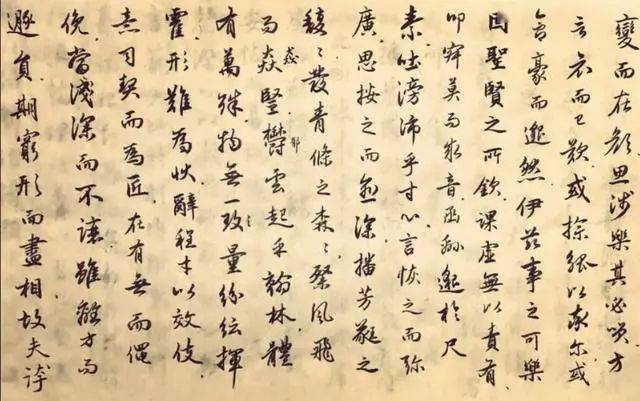 變而在顏思涉樂其必咲方
言哀而已歎或操觚以率尔或
含豪而邈然伊茲事之可樂
固聖賢之所欽課虛無以責有
叩寂莫而求音函緜邈於尺
素吐滂沛乎寸心言恢之而弥
廣思按之而愈深播芳蕤之
馥〻發青條之森〻粲風飛
而猋竪欝雲起乎翰林體
有萬殊物無一致量紛紜揮
霍形難為狀辭程才以效伎
意司契而為匠在有無而僶
俛當淺深而不讓雖離方而
遯員期窮形而盡相故夫誇